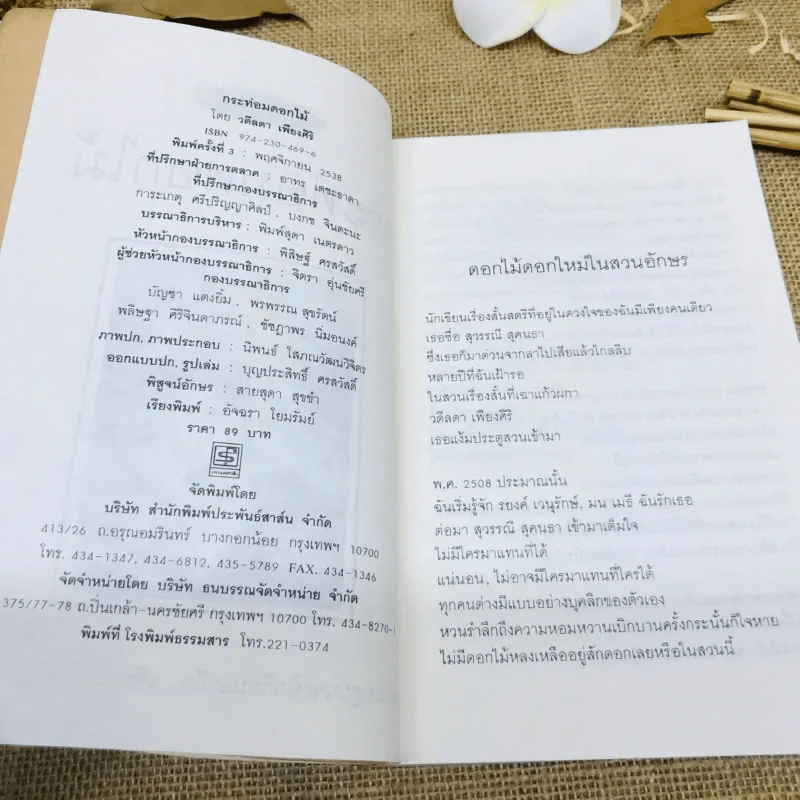 กระท่อมดอกไม้
โดย วดีลดา เพียงศิริ
ISBN 974-230-469-6
พิมพ์ครั้งที่ 3 : พฤศจิกายน 2538
ที่ปรึกษาฝ่ายการตลาด : อาทร เตชะธาดา
ที่ปรึกษากองบรรณาธิการ
การะเกตุ ศรีปริญญาศิลป์, บงกช จินตะนะ
บรรณาธิการบริหาร : พิมพ์สุดา เนตรดาว
หัวหน้ากองบรรณาธิการ : พิสิษฐ์ ศรสวัสดิ์
ผู้ช่วยหัวหน้ากองบรรณาธิการ : จิตรา อุ่นชัยศรี
กองบรรณาธิการ
บัญชา แตงยิ้ม, พรพรรณ สุขรัตน์
พลิษฐา ศิริจินดาภรณ์, ชัชฎาพร นิ่มอนงค์
ภาพปก, ภาพประกอบ : นิพนธ์ โสภณวัฒนวิจิตร
ออกแบบปก, รูปเล่ม : บุญประสิทธิ์ ศรสวัสดิ์
พิสูจน์อักษร : สายสุดา สุขขำ
เรียงพิมพ์ : อัจฉรา โยมรัมย์
ราคา 89 บาท
จัดพิมพ์โดย
บริษัท สำนักพิมพ์ประพันธ์สาส์น จำกัด
413/26 ถ.อรุณอมรินทร์ บางกอกน้อย กรุงเทพฯ 10700
โทร. 434-1347, 434-6812, 435-5789 FAX. 434-1346
จัดจำหน่ายโดย บริษัท ธนบรรณจัดจำหน่าย จำกัด
375/77-78 ถ.ปิ่นเกล้า-นครชัยศรี กรุงเทพฯ 10700 โทร. 434-8270-1
พิมพ์ที่ โรงพิมพ์ธรรมสาร โทร.221-0374
ดอกไม้ดอกใหม่ในสวนอักษร
นักเขียนเรื่องสั้นสตรีที่อยู่ในดวงใจของฉันมีเพียงคนเดียว
เธอชื่อ สุวรรณี สุคนธา
ซึ่งเธอก็มาด่วนจากลาไปเสียแล้วไกลลิบ
หลายปีที่ฉันเฝ้ารอ
ในสวนเรื่องสั้นที่เฉาแก้วผกา
วดีลดา เพียงศิริ
เธอแง้มประตูสวนเข้ามา
พ.ศ. 2508 ประมาณนั้น
ฉันเริ่มรู้จัก รยงค์ เวนุรักษ์, มน เมธี ฉันรักเธอ
ต่อมา สุวรรณี สุคนธา เข้ามาเติมใจ
ไม่มีใครมาแทนที่ได้
แน่นอน, ไม่อาจมีใครมาแทนที่ใครได้
ทุกคนต่างมีแบบอย่างบุคลิกของตัวเอง
หวนรำลึกถึงความหอมหวานเบิกบานครั้งกระนั้นก็ใจหาย
ไม่มีดอกไม้หลงเหลืออยู่สักดอกเลยหรือในสวนนี้